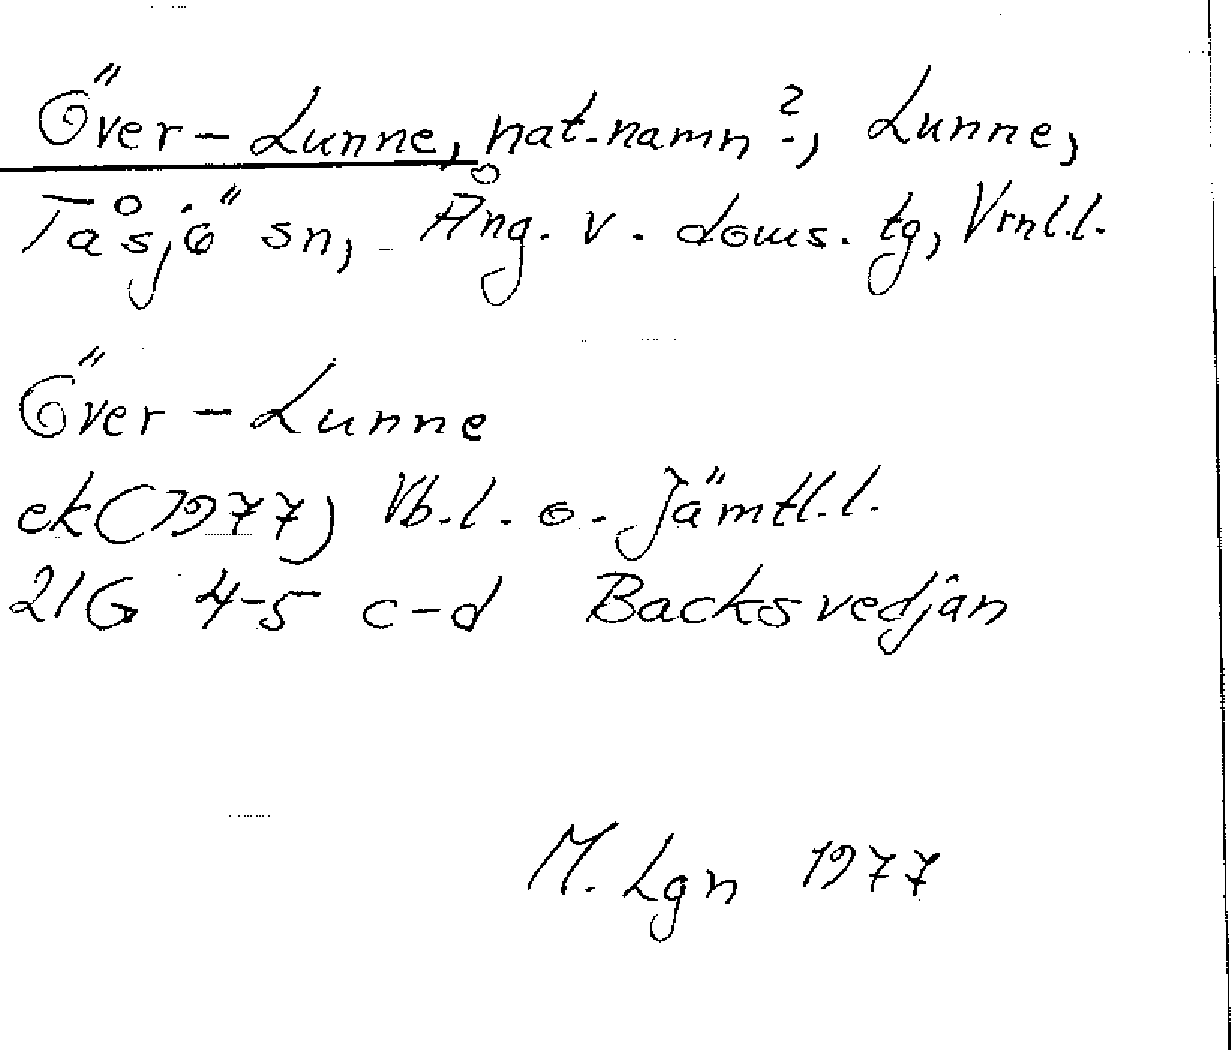 Över-Lunne, nat.namn?, Lunne,
Tåsjö sn, Ång. v. doms. tg, Vrnl.l.
Över-Lunne
ek(1977) Vb.l. o. Jämtl.l.
21G 4-5 c-d Backsvedjan
M. Lgn 1977